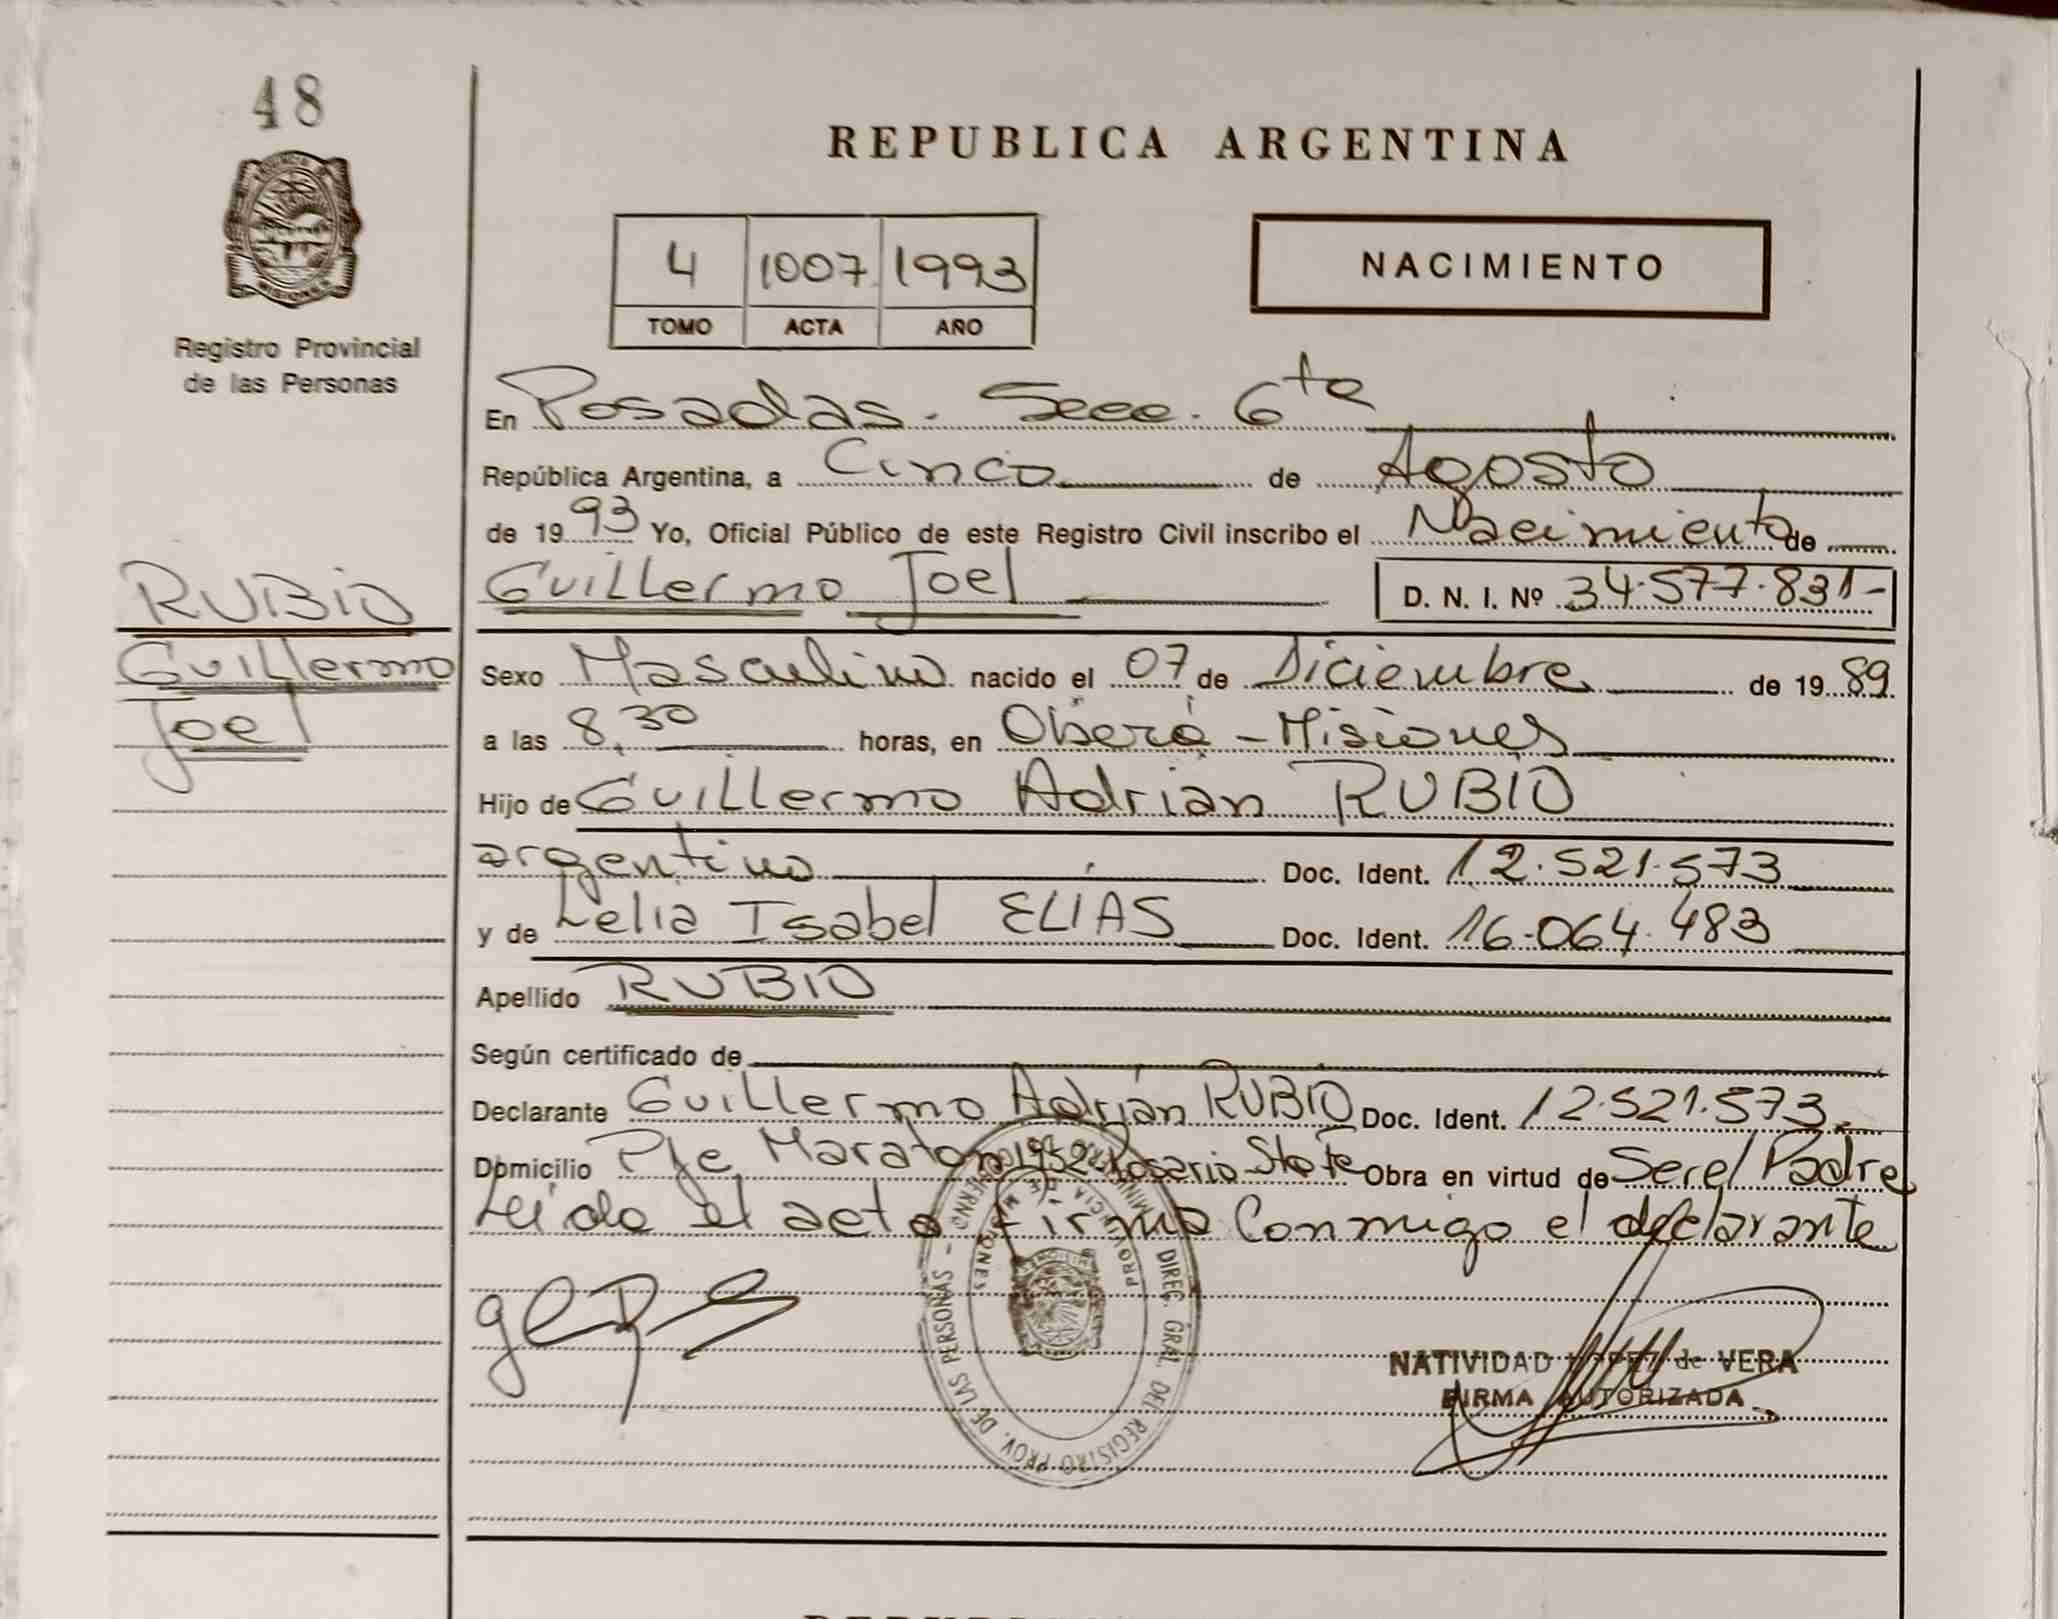 48
REPUBLICA ARGENTINA
4 1007 1993
TOMO ACTA AÑO
NACIMIENTO
Registro Provincial
de las Personas
En Posadas - Secc. 6ta
República Argentina, a Cinco de Agosto
de 1993 Yo, Oficial Público de este Registro Civil inscribo el Nacimiento de
RUBIO
Guillermo
Joel
Guillermo Joel D. N. I. Nº 34.577.831-
Sexo Masculino nacido el 07 de Diciembre de 1989
a las 8,30 horas, en Oberá - Misiones
Hijo de Guillermo Adrian RUBIO
argentino Doc. Ident. 12.521.573
y de Lelia Isabel ELIAS Doc. Ident. 16.064.483
Apellido RUBIO
Según certificado de
Declarante Guillermo Adrián RUBIO Doc. Ident. 12.521.573.-
Domicilio Pje Maraton 1952 Rosario Sta Fe Obra en virtud de Ser el Padre
Leido el acto firma Conmigo el declarante
DIREC. GRAL. DEL REGISTRO PROV. DE LAS PERSONAS -
PROVINCIA DE MISIONES
NATIVIDAD de VERA
FIRMA AUTORIZADA